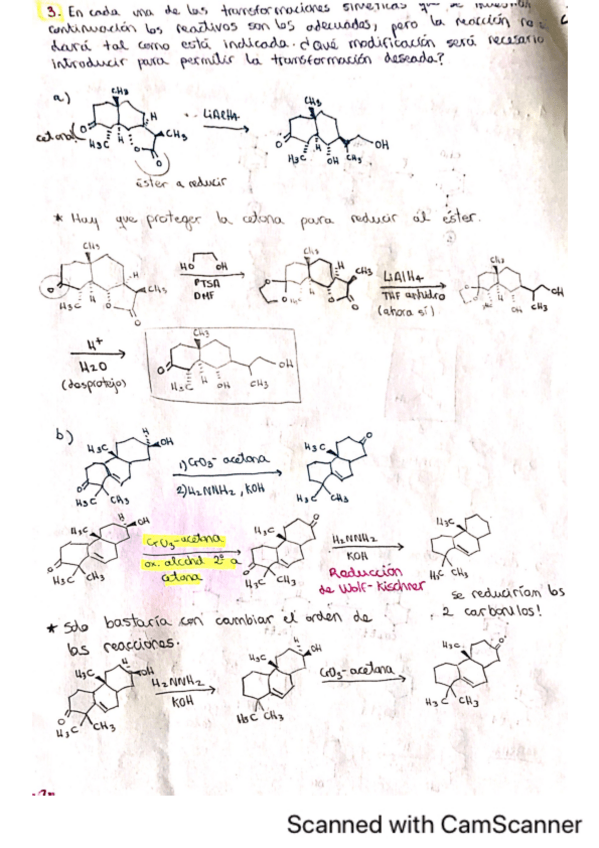 3. En cada una de las transformaciones sinteticas que se
continuación los reactivos son los adecuados, pero la reacción no
dará tal como está indicada. ¿Qué modificación será necesario
introducir para permitir la transformación deseada?
a)
CH3
H
CH3
O
H3C
H
O
O
cetona
LiAlH4
CH3
O
H3C
H
OH
CH3
OH
éster a reducir
* Hay que proteger la cetona para reducir al éster.
CH3
O
H3C
H
O
O
H
CH3
HO OH
PTSA
DMF
CH3
O
O
H
CH3
O
O
LiAlH4
THF anhidro
(ahora sí)
CH3
O
O
OH
CH3
OH
H+
H2O
(desprotejo)
CH3
O
H3C
H
OH
CH3
OH
b)
H3C
H
OH
O
H3C CH3
1) CrO3- acetona
2) H2NNH2, KOH
H3C
O
H3C CH3
H3C
H
OH
O
H3C CH3
CrO3-acetona
ox. alcohol 2º a
cetona
H3C
O
O
H3C CH3
H2NNH2
KOH
Reducción
de Wolf-Kischner
H3C
H3C CH3
se reducirían los
2 carbonilos!
* Solo bastaría con cambiar el orden de
las reacciones.
H3C
H
OH
O
H3C CH3
H2NNH2
KOH
H3C
H
OH
H3C CH3
CrO3-acetona
H3C
O
H3C CH3
Scanned with CamScanner